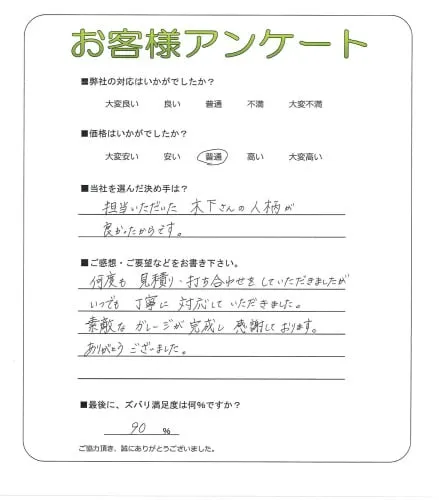 お客様アンケート
■弊社の対応はいかがでしたか?
大変良い 良い 普通 不満 大変不満
■価格はいかがでしたか?
大変安い 安い 普通 高い 大変高い
■当社を選んだ決め手は?
担当いただいた 木下さんの人柄が
良かったからです。
■ご感想・ご要望などをお書き下さい。
何度も 見積り・打ち合わせをしていただきましたが
いつでも 丁寧に 対応していただきました。
素敵な ガレージが完成し 感謝しております。
ありがとう ございました。
■最後に、ズバリ満足度は何%ですか?
90 %
ご協力頂き、誠にありがとうございました。